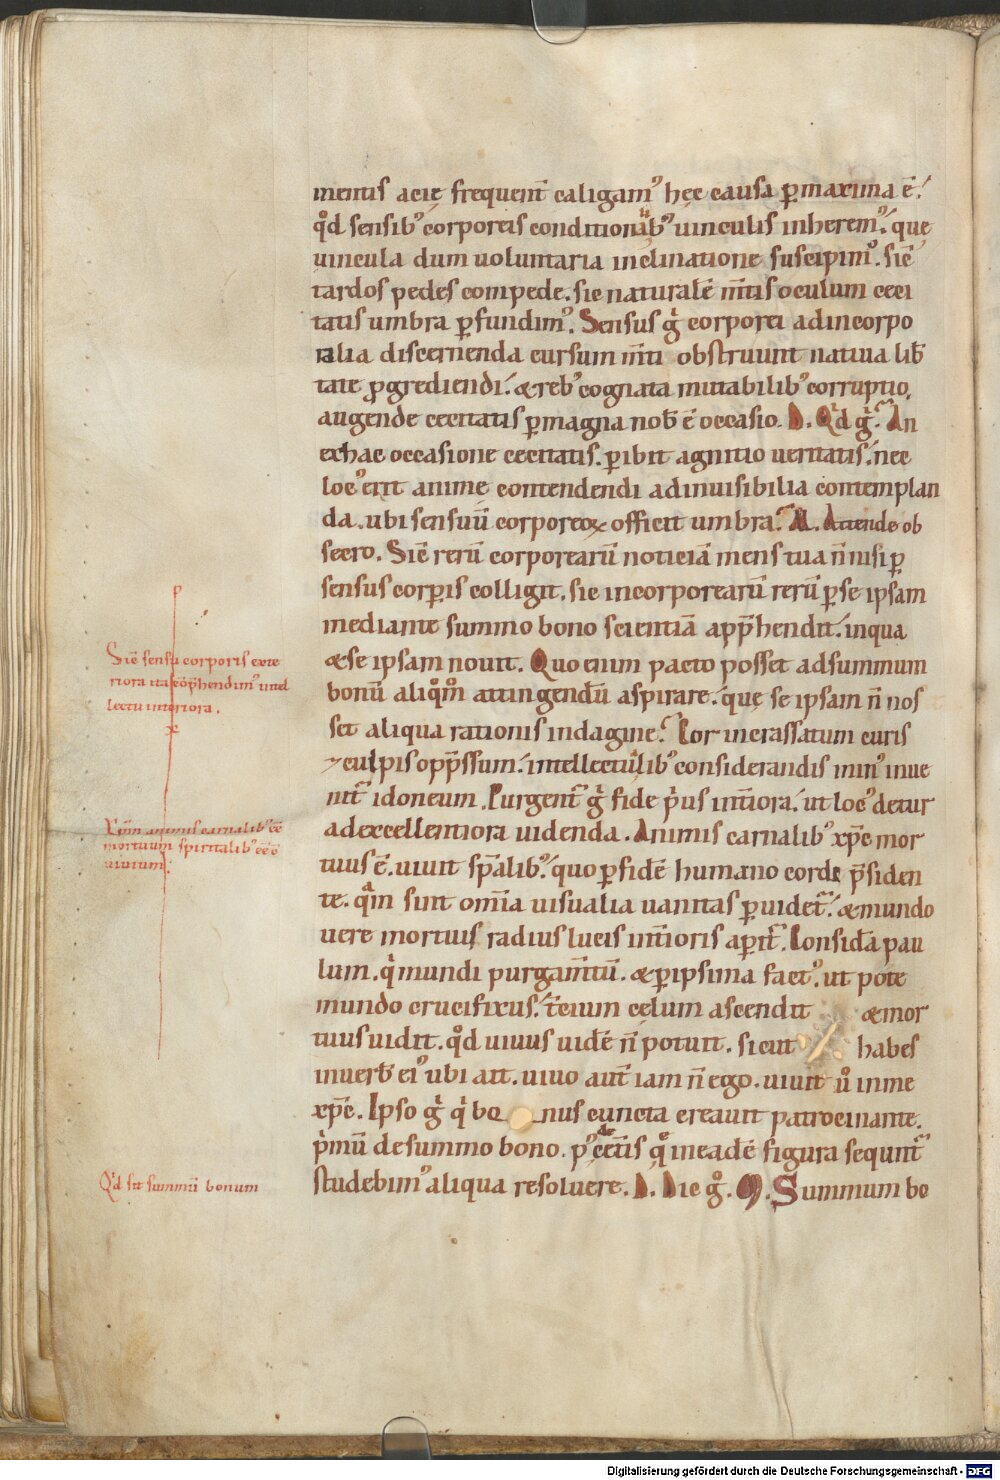 mentis acię frequent̄ caligam᾽ hęc causa ꝑmaxima ē.
qd̊ sensib᾽ corporeis conditionū uinculis inherem᾽. que
uincula dum uoluntaria inclinatione suscipim᾽. sic̄
tardos pedes compede. sic naturalē m̄tis oculum ceci
tatis umbra ꝑfundim᾽. Sensus g̊ corporei adincorpo
ralia discernenda cursum m̄ti obstruunt natiua lib̄
tate ꝓgrediendi. & reb᾽ cognata mutabilib᾽ corruptio,
augende cecitatis ꝑmagna nob̄ ē occasio. D. Qd g̊. An
exhac occasione cecitatis. ꝑibit agnitio ueritatis. nec
loc᾽ erit animę contendendi adinuisibilia contemplan
da. ubi sensuū corporeoꝝ officit umbra. M. Attende ob
secro. Sic̄ rerū corporearū noticiā mens tua n̄ nisi ꝑ
sensus corꝑis colligit. sic incorporearū rerū ꝑse ipsam
mediante summo bono scientiā app̄hendit. inqua
& se ipsam nouit. Quo enim pacto posset adsummum
bonū aliqm̊ attingendū aspirare. quę se ipsam n̄ nos
set aliqua rationis indagine. Cor incrassatum curis
⁊culpis opp̄ssum. intellectualib᾽ considerandis min᾽ inue
nit̄ idoneum. Purgent̄ g̊ fide p̊us int̄iora. ut loc᾽ detur
adexcellentiora uidenda. Animis carnalib᾽ xp̄c mor
tuus ē. uiuit sp̄alib᾽. quo ꝑ fidē humano corde p̄siden
te. qm̄ sint om̄ia uisualia uanitas ꝑuidet̄. & mundo
uere mortuis radius lucis int̄ioris aꝑit̄. Consid̄a pau
lum. q̊ mundi purgam̄tū. & ꝑipsima fact᾽. ut pote
mundo crucifixus. t̄cium cęlum ascendit & mor
tuus uidit. qd̊ uiuus uidē n̄ potuit. sicut habes
inuerb̄ ei᾽ ubi ait. uiuo aut̄ iam n̄ ego. uiuit ů inme
xp̄c. Ipso g̊ q̊ bo nus cuncta creauit patrocinante.
p̊mū desummo bono. p᾽ de cet̄is q̊ ineadē figura sequnt̄
studebim᾽ aliqua resoluere. D. Dic g̊. M. Summum bo
Sic̄ sensu corporis exte
riora ita cōp̄hendim᾽ intel
lectu interiora.
Xp̄m animis carnalib᾽ eē
mortuum spiritalib᾽ eē
uiuum.
Qd̊ sit summū bonum
Digitalisierung gefördert durch die Deutsche Forschungsgemeinschaft - DFG